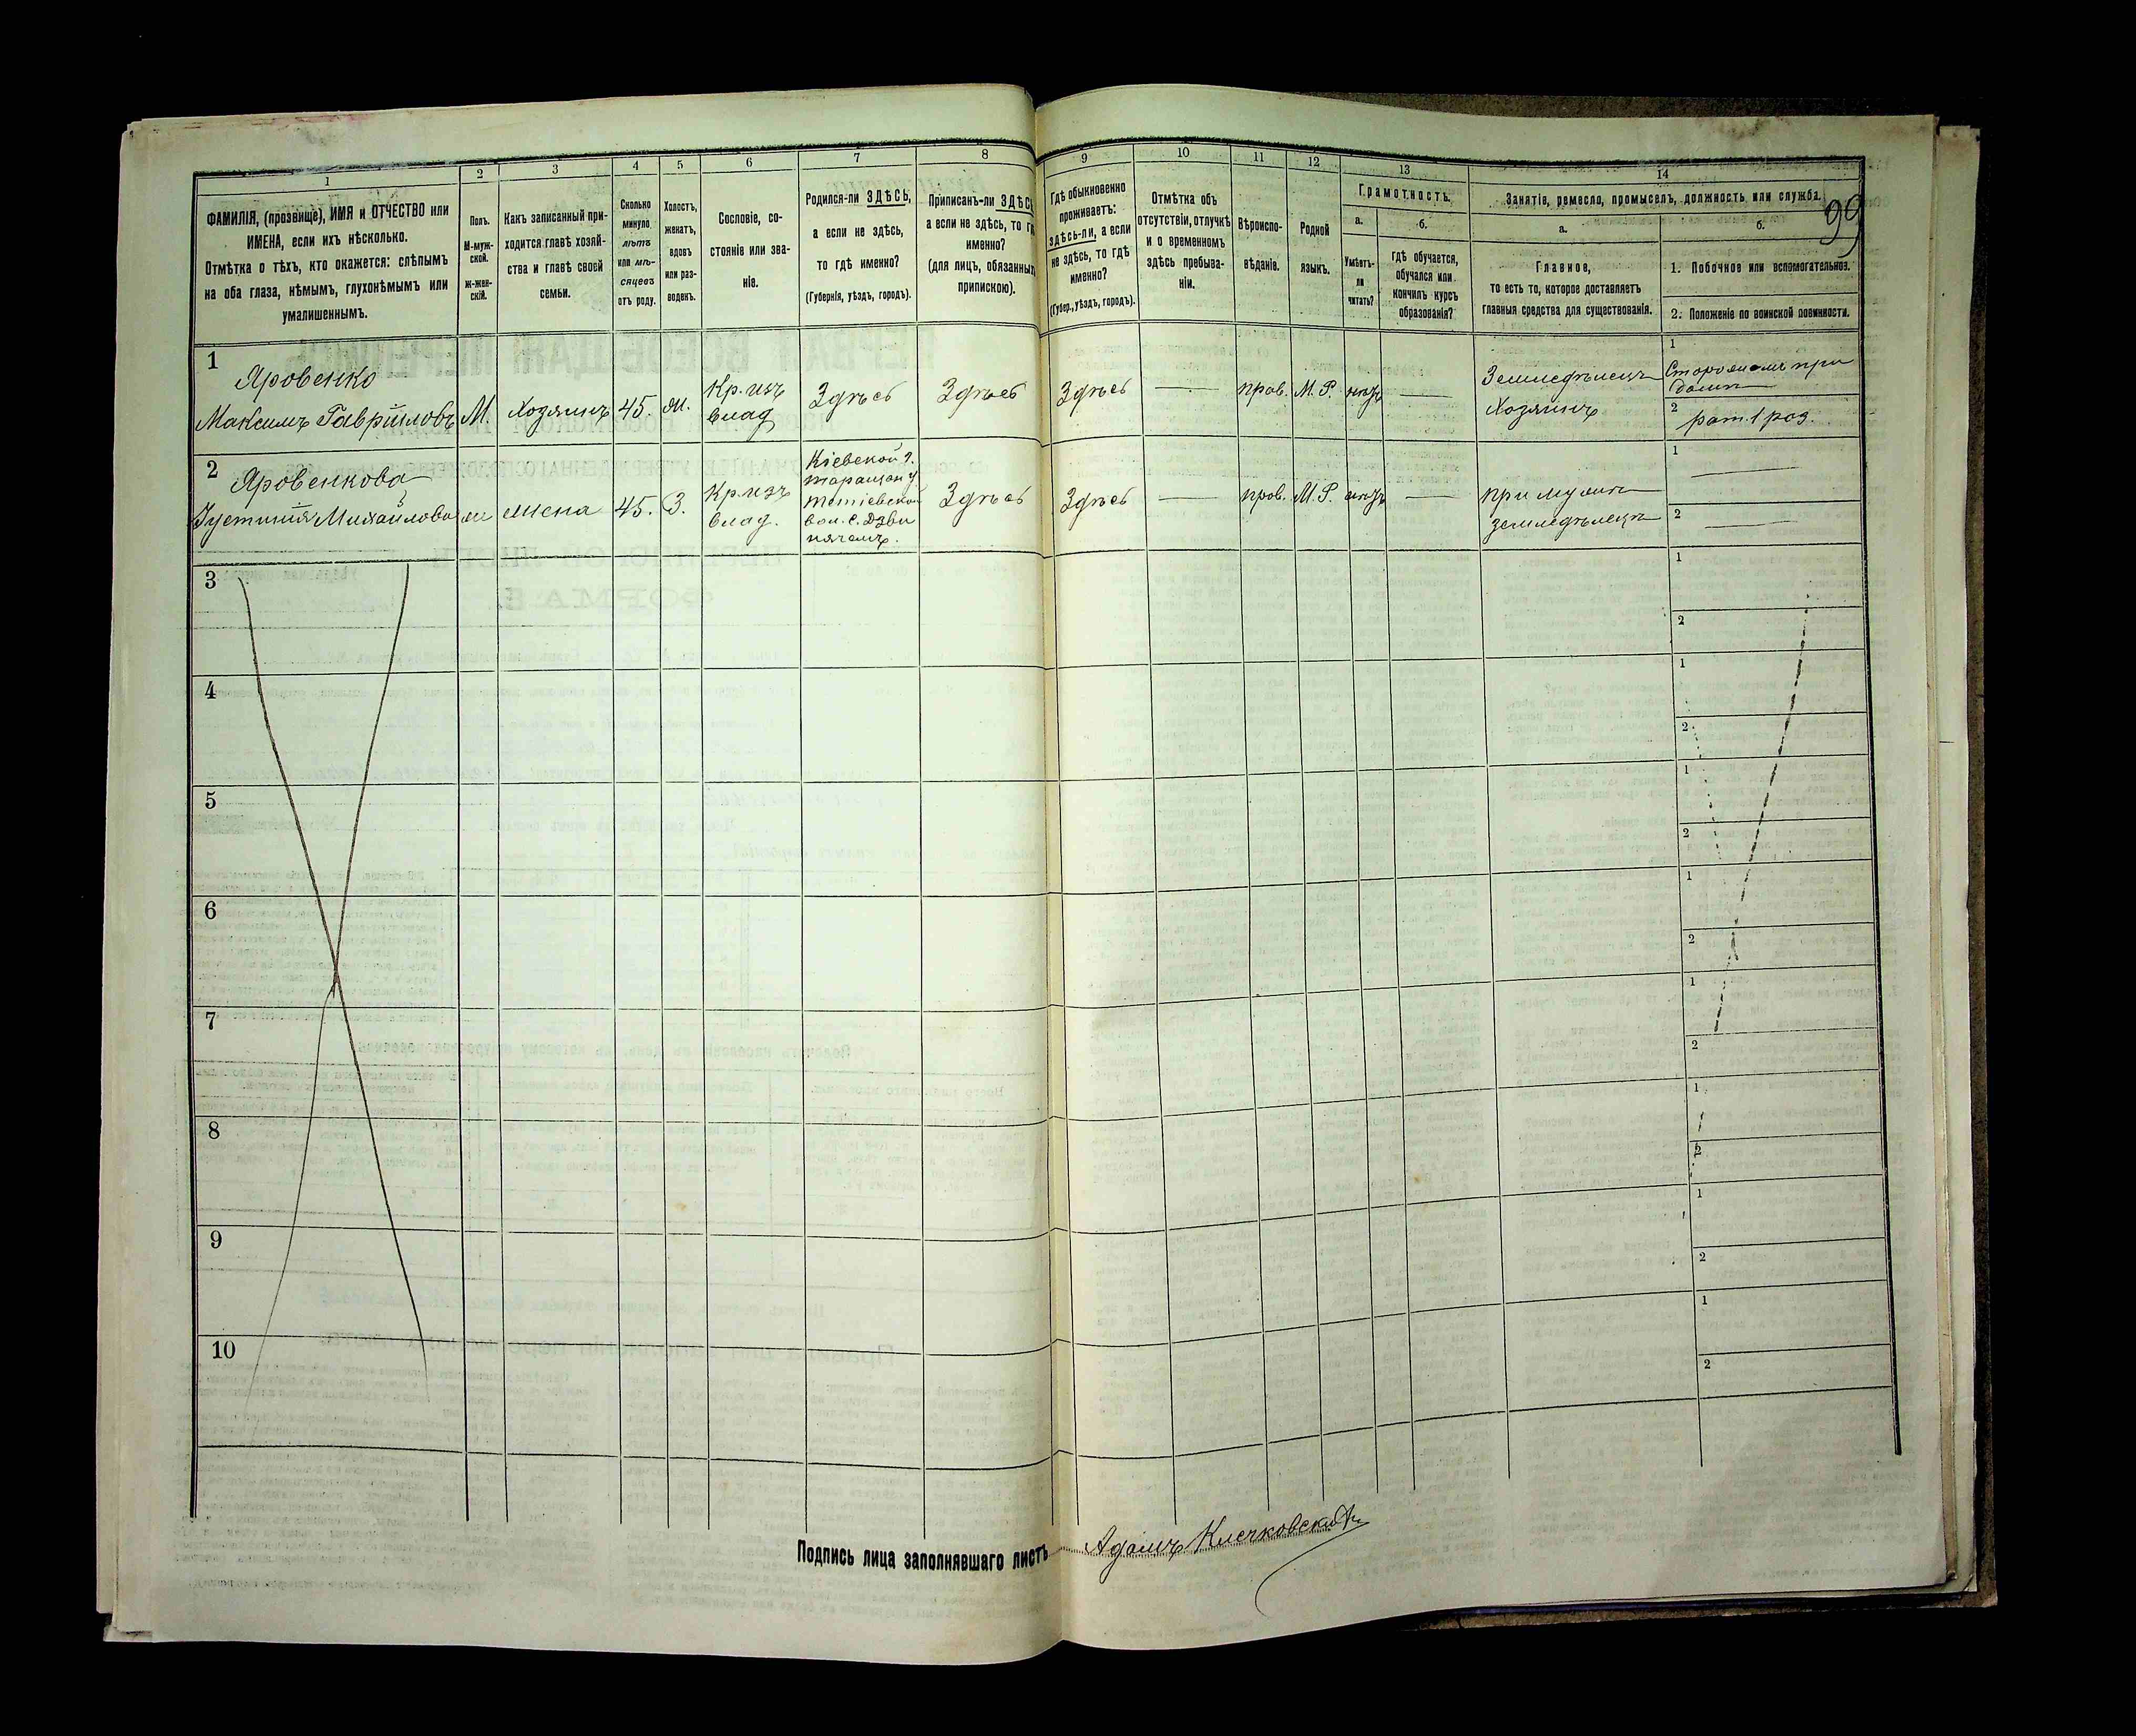 99
1
ФАМИЛІЯ, (прозвище), ИМЯ и ОТЧЕСТВО или
ИМЕНА, если ихъ нѣсколько.
Отмѣтка о тѣхъ, кто окажется: слѣпымъ
на оба глаза, нѣмымъ, глухонѣмымъ или
умалишеннымъ.
2
Полъ.
М-муж-
ской.
ж-жен-
скій.
3
Какъ записанный при-
ходится главѣ хозяй-
ства и главѣ своей
семьи.
4
Сколько
минуло
лѣтъ
или мѣ-
сяцевъ
отъ роду.
5
Холостъ,
женатъ,
вдовъ
или раз-
веденъ.
6
Сословіе, со-
стояніе или зва-
ніе.
7
Родился-ли ЗДѢСЬ,
а если не здѣсь,
то гдѣ именно?
(Губернія, уѣздъ, городъ).
8
Приписанъ-ли ЗДѢСЬ
а если не здѣсь, то гдѣ
именно?
(для лицъ, обязанныхъ
припискою).
9
Гдѣ обыкновенно
проживаетъ:
здѣсь-ли, а если
не здѣсь, то гдѣ
именно?
(Губер., уѣздъ, городъ).
10
Отмѣтка объ
отсутствіи, отлучкѣ
и о временномъ
здѣсь пребыва-
ніи.
11
Вѣроиспо-
вѣданіе.
12
Родной
языкъ.
13
Грамотность.
а.
Умѣетъ-
ли
читать?
б.
Гдѣ обучается,
обучался или
кончилъ курсъ
образованія?
14
Занятіе, ремесло, промыселъ, должность или служба.
а.
Главное,
то есть то, которое доставляетъ
главныя средства для существованія.
б.
1. Побочное или вспомогательное.
2. Положеніе по воинской повинности.
1
Яровенко
Максимъ Гавриловъ
М.
Хозяинъ
45.
ж.
Кр. изъ
влад
Здѣсь
Здѣсь
Здѣсь
—
прав.
М. Р.
—
Земледѣлецъ
Хозяинъ
1
при
2
рат. 1 раз.
2
Яровенкова
Устинія Михайлова
ж
жена
45.
З.
Кр. изъ
влад.
Кіевской г.
Таращан у.
Тетіевской
вол. с.
Здѣсь
Здѣсь
—
прав.
М. Р.
—
при мужѣ
земледѣлецъ
1
—
2
—
3
1
2
4
1
2
5
1
2
6
1
2
7
1
2
8
1
2
9
1
2
10
1
2
Подпись лица заполнявшаго листъ
Адамъ Клечковскій